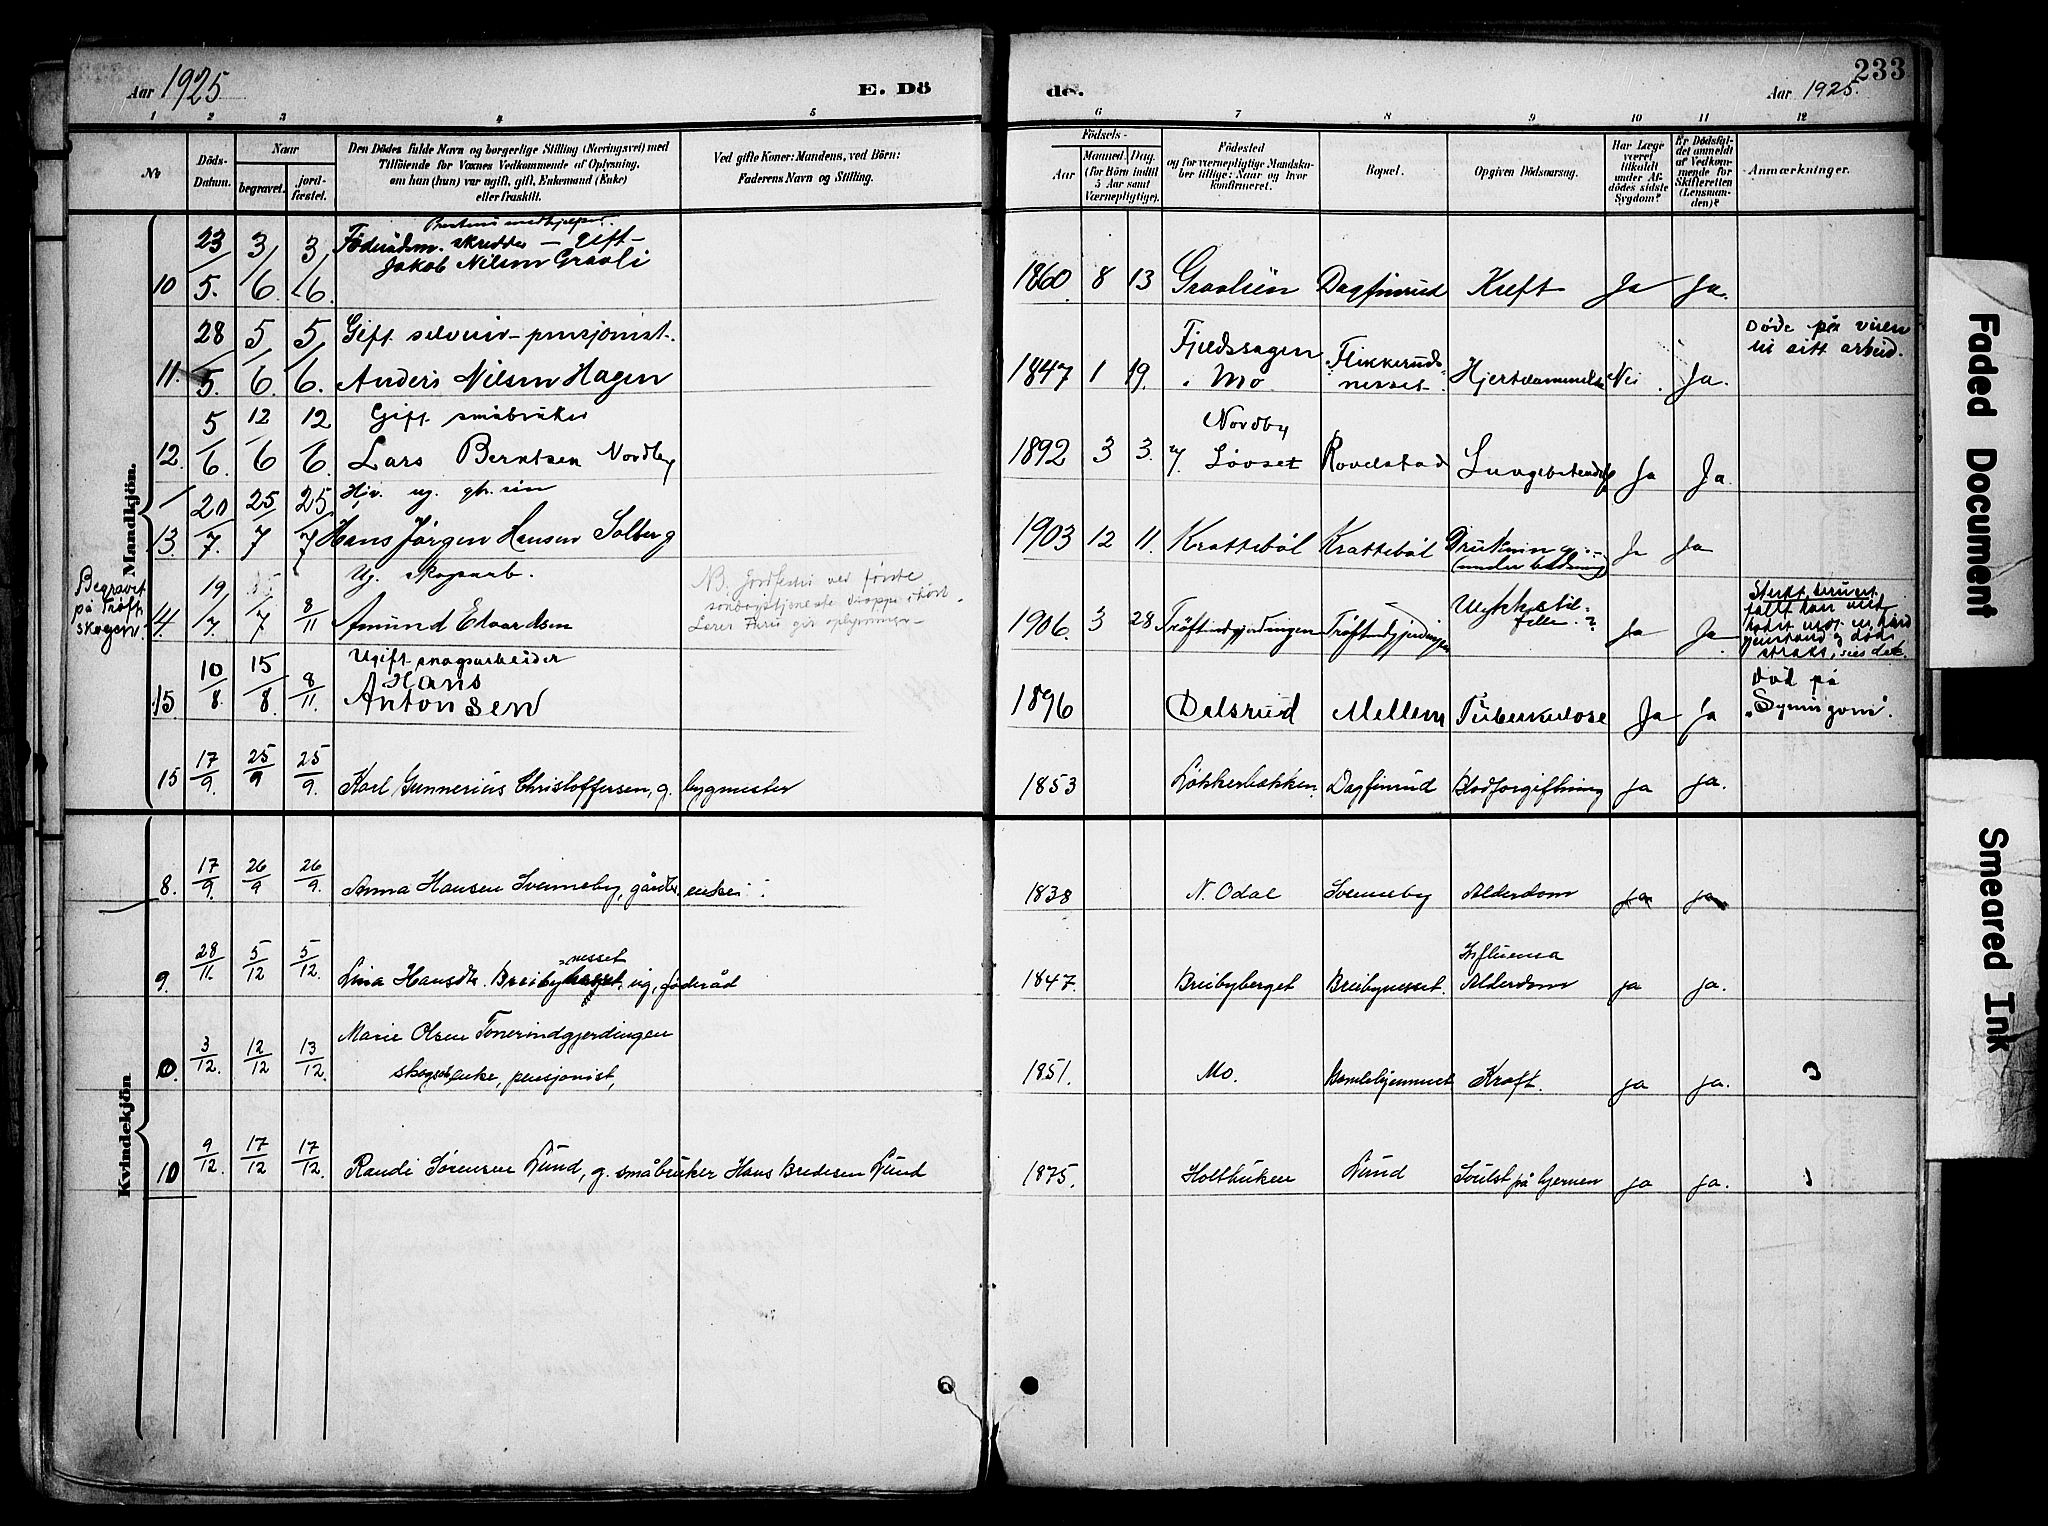 Aar 1925
E. Dö
de.
Aar 1925.
233
1 2 3 4 5 6 7 8 9 10 11 12
No
Döds-Datum.
Naar
begravet.
jord-fæstet.
Den Dödes fulde Navn og borgerlige Stilling (Næringsvei) med
Tilföiende for Voxnes Vedkommende af Oplysning,
om han (hun) var ugift, gift, Enkemand (Enke)
eller fraskilt.
Ved gifte Koner: Mandens, ved Börn:
Faderens Navn og Stilling.
Födsels-
Aar
Maaned. Dag.
(for Börn indtil
5 Aar samt
Værnepligtige).
Födested
og for værnepligtige Mandska-
ber tillige: Naar og hvor
konfirmeret.
Bopæl.
Opgiven Dödsaarsag.
Har Læge
været
tilkaldt
under Af-
dödes sidste
Sygdom?
Er Dödsfal-
det anmeldt
af Vedkom-
mende for
Skifteretten
(Lensman-
den)?
Anmærkninger.
Mandkjön.
10 23/5. 3/6. 3/6. Föderådsm. skredder – Gift –
Jakob Nilsen Graali
1860 8 13 Graalien Dagfinrud Kreft Ja Ja.
11. 28/5. 5/6. 5/6. Gift. selveier – pensjonist.
Anders Nilsen Hagen
1847 1 19. Fjeldssagen
Mo
Flikkeruds-
nesset
Hjertelammelse Nei. Ja.
Døde på veien
til sitt arbeid.
12. 5/6. 12/6 12/6. Gift. småbruker
Lars Berntsen Nordby
1892 3 3. Nordby
Løvset Rovelstad Ja Ja.
13. 20/7. 25/7 25/7 Hjv. ug. gbr. søn
Hans Jørgen Hansen Solberg
1903 12 11. Krattebøl Krattebøl Drukning
(under badning) Ja Ja
Begravet
på Trøft-
skogen.
14. 19/7. 7 8/11 Ug. skogsarb.
Amund Edvardsen
NB. Jordfestet ved første
1906. 3 28 Trøftindgjerdingen Trøftindgjerdingen Ulykkestil-
felle. ? Ja Ja.
15. 10/8. 15/8. 8/11. Ugift skogsarbeider
Hans
Antonsen
1896 Dalsrud Mellem Tuberkulose Ja Ja
Død på
15 17/9. 25/9 25/9. Karl Gunnerius Christoffersen, g. bygmester
1853 Løkkerbakken Dagfinrud Blodforgiftning ja ja.
Kvindekjön
8. 17/9. 26/9 26/9. Anna Hansen Svenneby, gårdbr. enke
1838 N. Odal Svenneby Alderdom ja ja
9. 28/11. 5/12 5/12. Lina Hansdt. Breiby-nesset, ug, føderåd
1847. Breibyberget Breibynesset. Influensa
Alderdom ja ja.
0. 3/12. 12/12 13/12. Marie Olsen Tonerindgjerdingen
skogsarb. enke, pensjonist,
1851. Mo. Gamlehjemmet Kræft. ja ja.
10 9/12. 17/12 17/12. Randi Sørensen Lund, g. småbruker Hans Bredesen Lund
1875. Holtbuken Lund Svulst på hjernen ja ja.
Faded Document
Smeared Ink